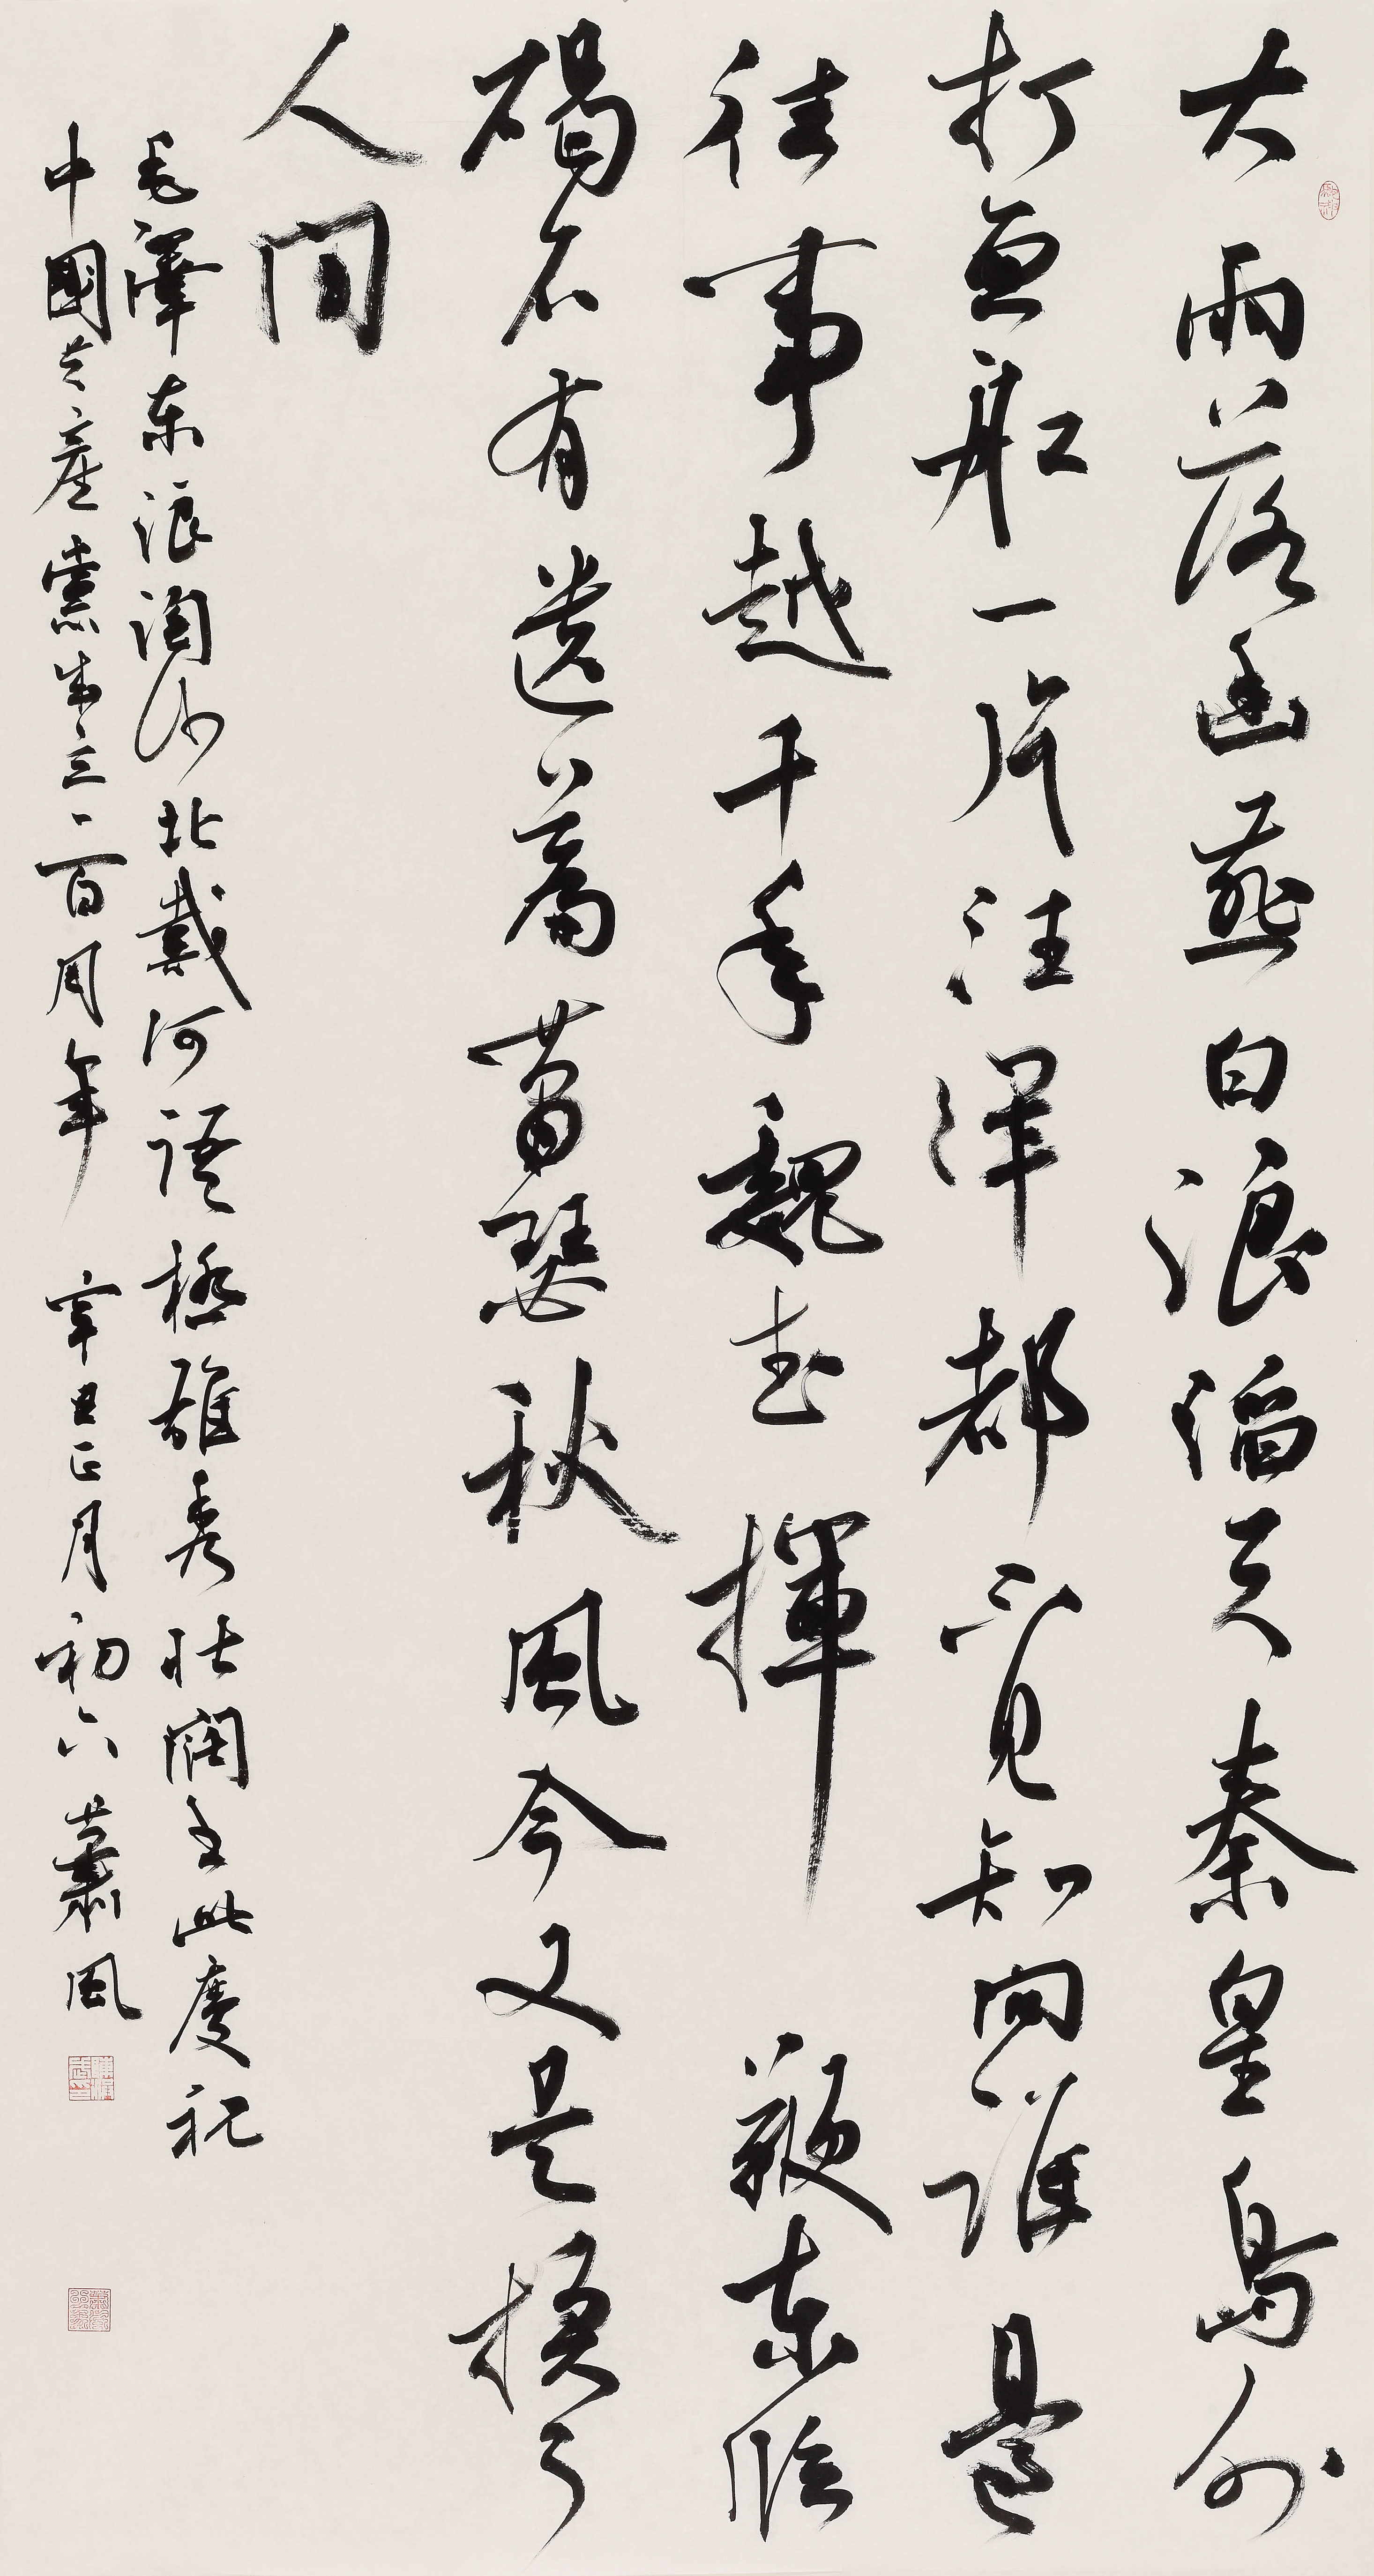 大雨落幽燕白浪滔天秦皇島外
打魚船一片汪洋都不見知向誰邊
往事越千年魏武揮鞭東臨
碣石有遺篇蕭瑟秋風今又是換了
人間
毛澤东浪淘沙北戴河語極雄秀壮闊書此慶祝
中國共產黨成立一百周年 辛丑正月初六 蕭風